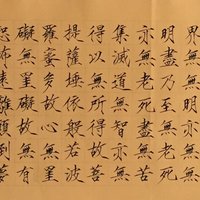 界無無明亦無無
明盡乃至無老死
亦無老死盡無苦
集滅道無智亦無
得以無所得故菩
提薩埵依般若波
羅蜜多故心無罣
礙無罣礙故無有
恐怖遠離顛倒夢